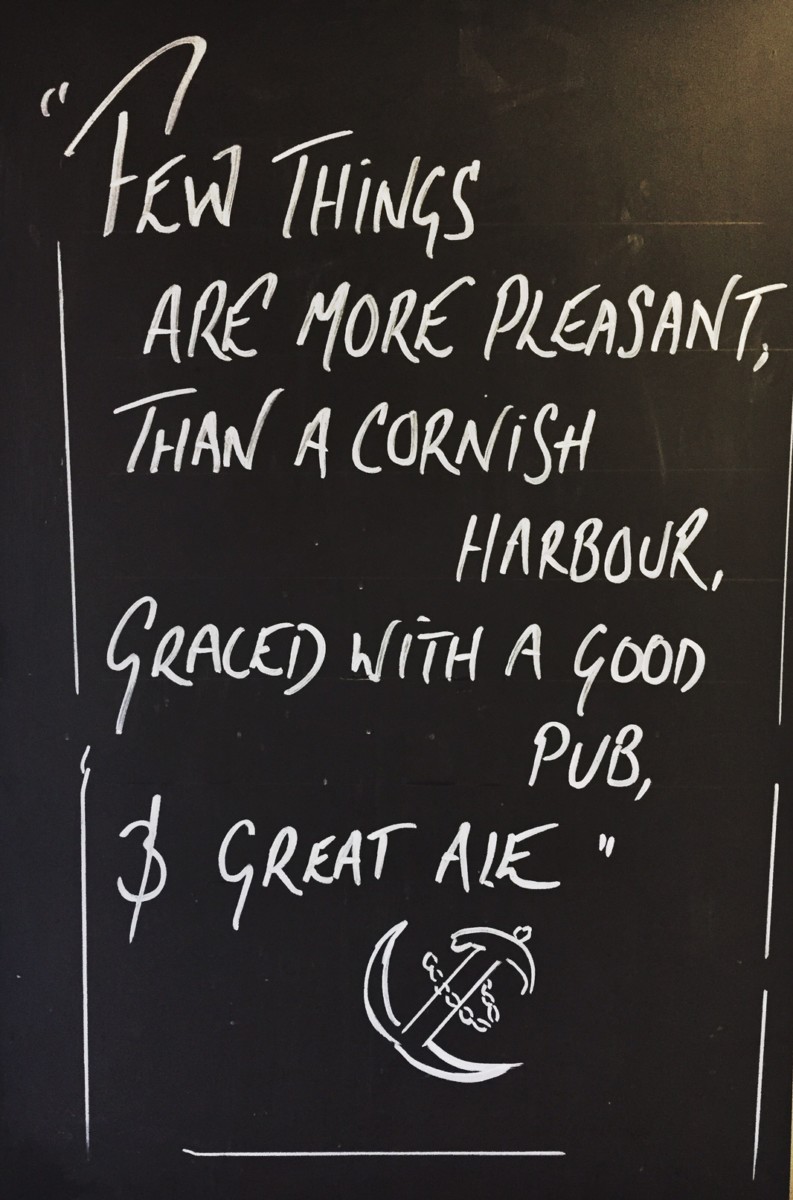 "FEW THiNGS
ARE MORE PLEASANT,
THAN A CORNiSH
HARBOUR,
GRACED WiTH A GOOD
PUB,
& GREAT ALE"